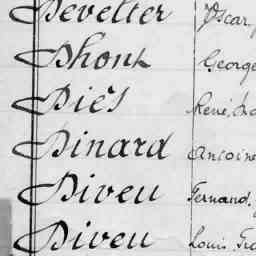 Develter Oscar,
Dhont George
Diés René, 
Dinard Antoine
Diveu Fernand,
Diveu Louis